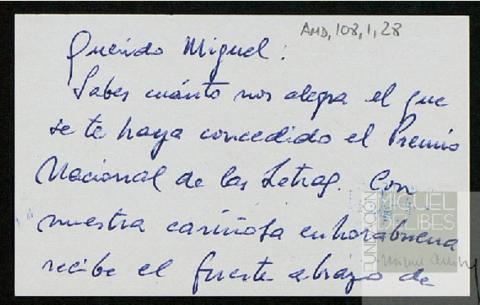 AMD,108,1,28
Querido Miguel:
Sabes cuánto nos alegra el que
se te haya concedido el Premio
Nacional de las Letras. Con
nuestra cariñosa enhorabuena
recibe el fuerte abrazo de
FUNDACIÓN
MIGUEL
DELIBES